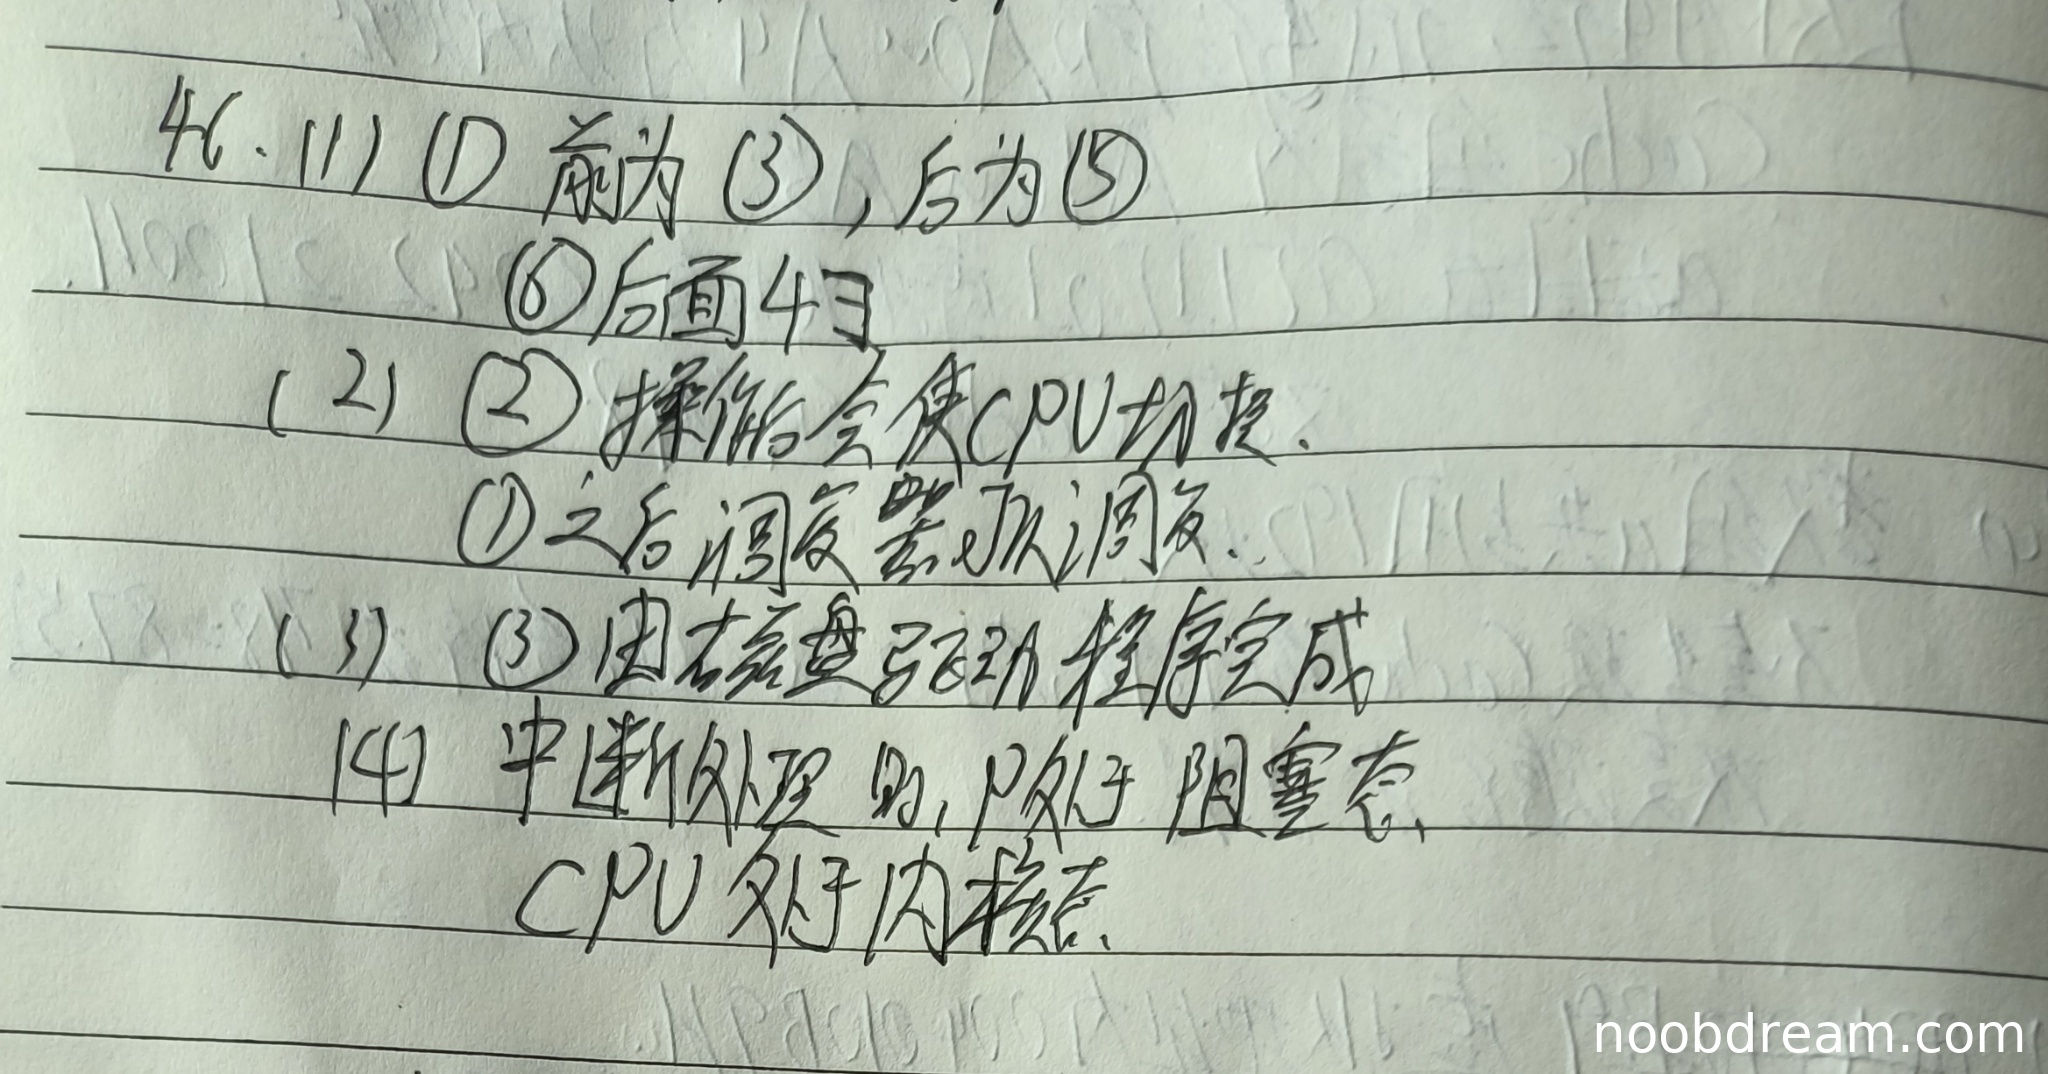 46.(1) ① 前为③,后为⑤
⑥后面4
(2) ②操作后会使CPU切换.
①之后调度 调度.
(3) ③由磁盘驱动程序完成
(4) 中断处理时,P处于阻塞态,
CPU处于内核态.
noobdream.com